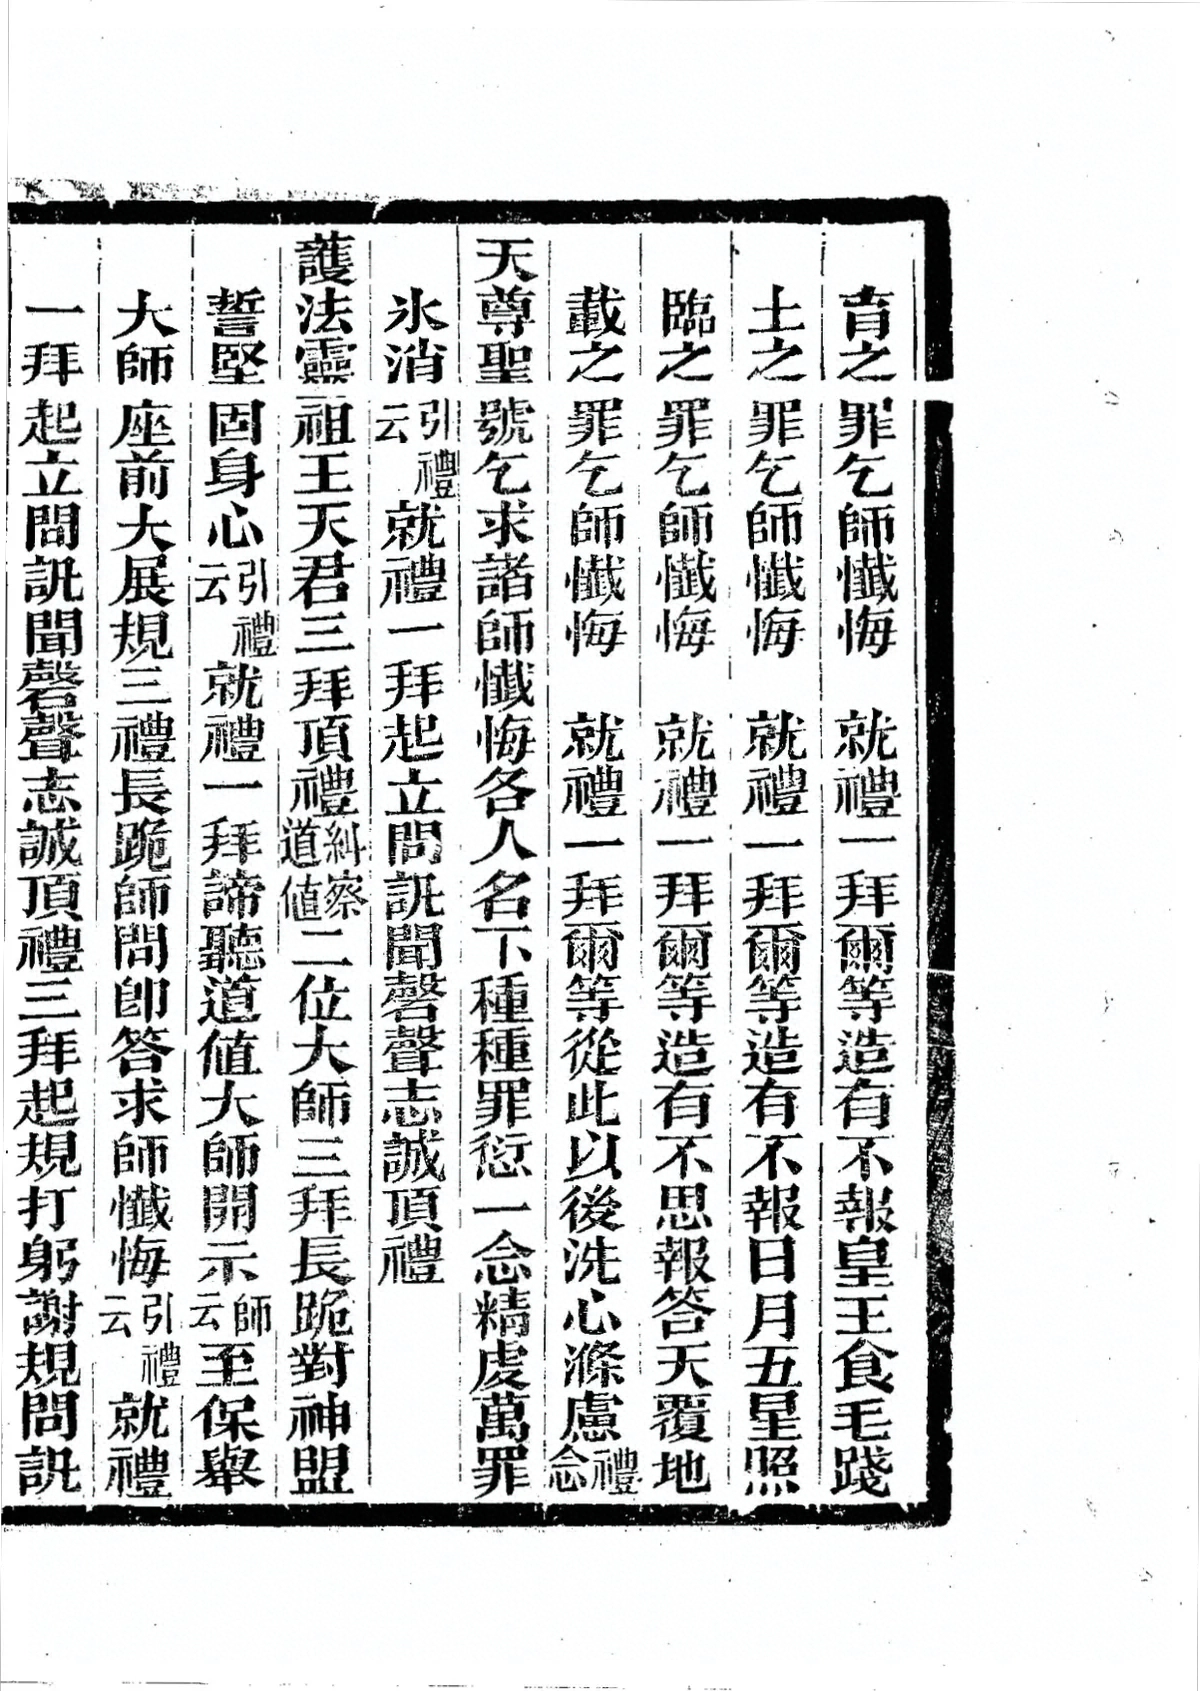 育之罪乞師懺悔　就禮一拜爾等造有不報皇王食毛踐
土之罪乞師懺悔　就禮一拜爾等造有不報日月五星照
臨之罪乞師懺悔　就禮一拜爾等造有不思報答天覆地
載之罪乞師懺悔　就禮一拜爾等從此以後洗心滌慮禮念
天尊聖號乞求諸師懺悔各人名下種種罪愆一念精虔萬罪
氷消引禮云就禮一拜起立問訊聞磬聲志誠頂禮
護法靈祖王天君三拜頂禮糾察道值二位大師三拜長跪對神盟
誓堅固身心引禮云就禮一拜諦聽道值大師開示師云至保舉
大師座前大展規三禮長跪師問卽答求師懺悔引禮云就禮
一拜起立問訊聞磬聲志誠頂禮三拜起規打躬謝規問訊